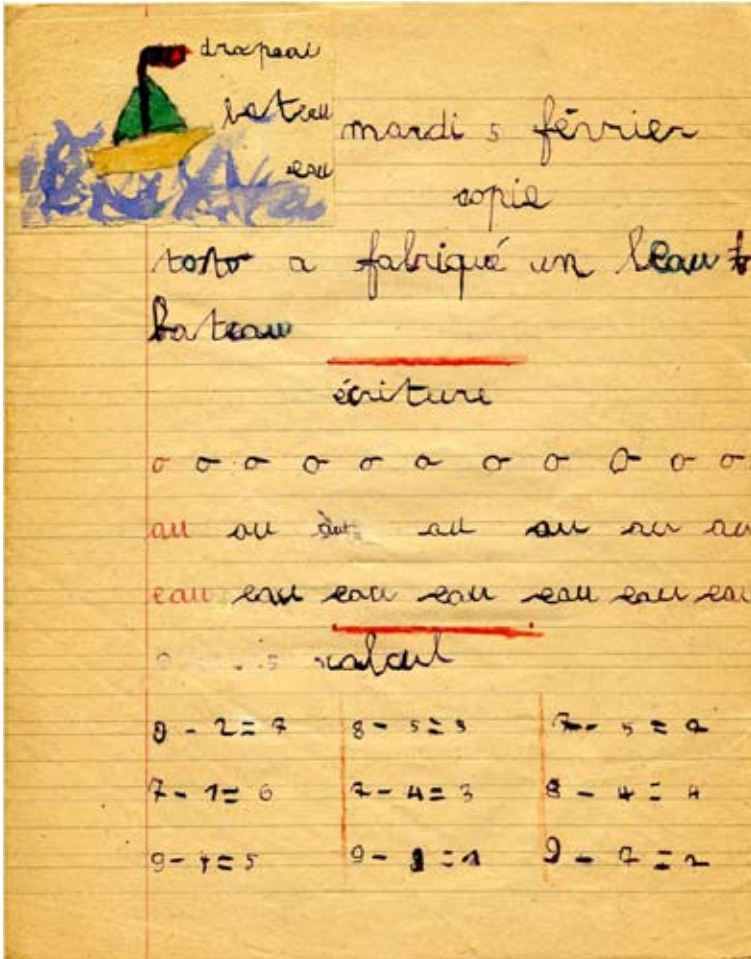 drapeau
bateau
eau
mardi 5 février
copie
toto a fabriqué un beau
bateau
écriture
o o o o o o o o o o o
au au au au au au au
eau eau eau eau eau eau eau
calcul
9 - 2 = 7 8 - 5 = 3 7 - 5 = 2
7 - 1 = 6 7 - 4 = 3 8 - 4 = 4
9 - 4 = 5 9 - 7 = 2